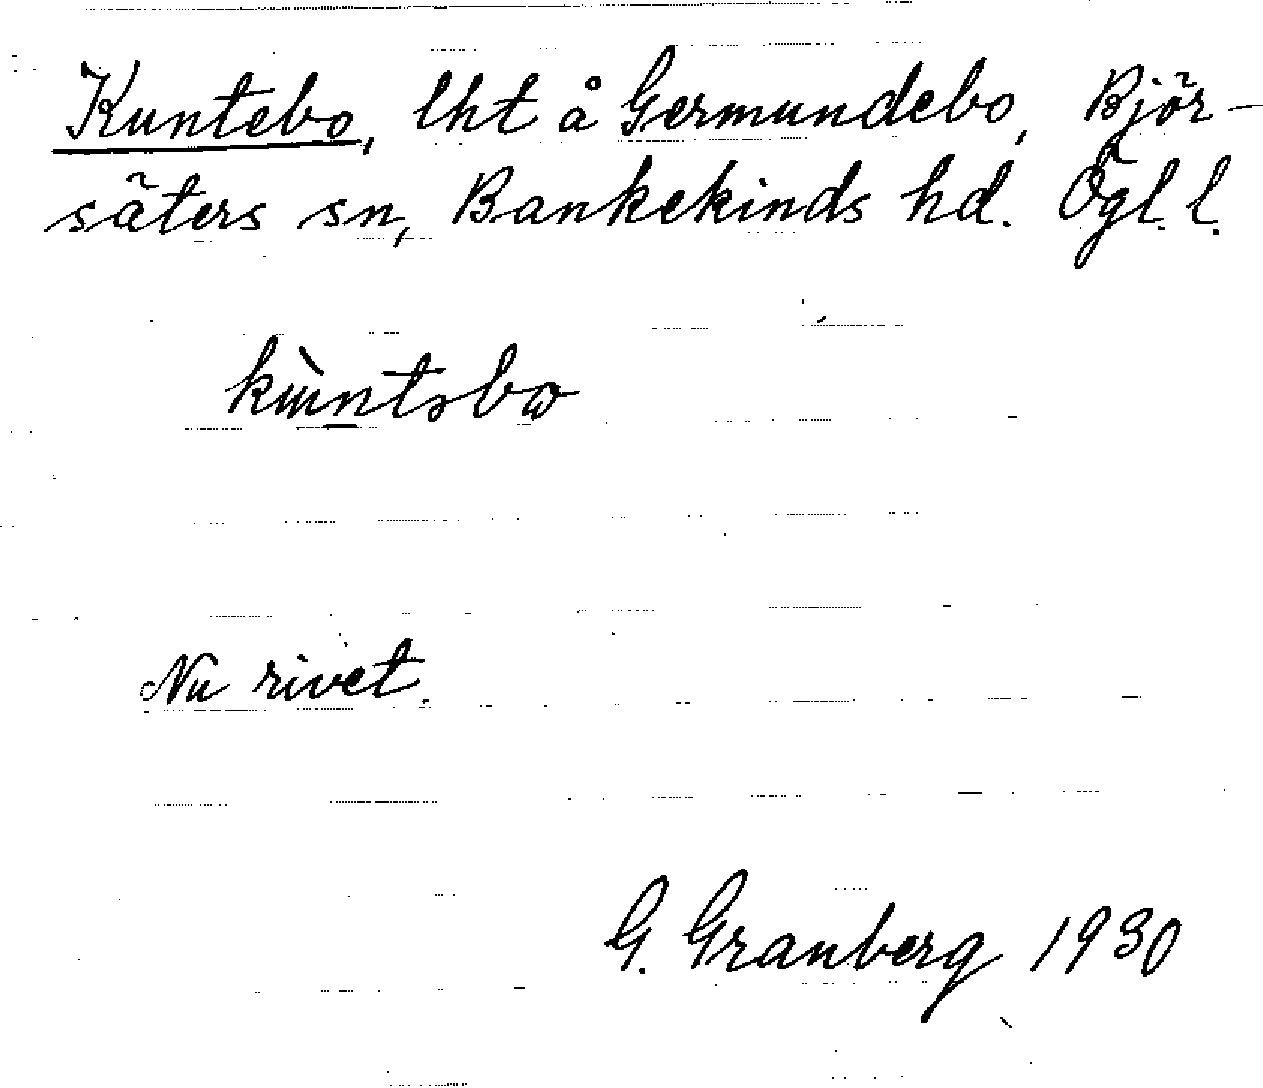 Kuntebo, lht å Germundebo, Björ-
säters sn, Bankekinds hd. Ögl. l.
Nu rivet.
G. Granberg 1930